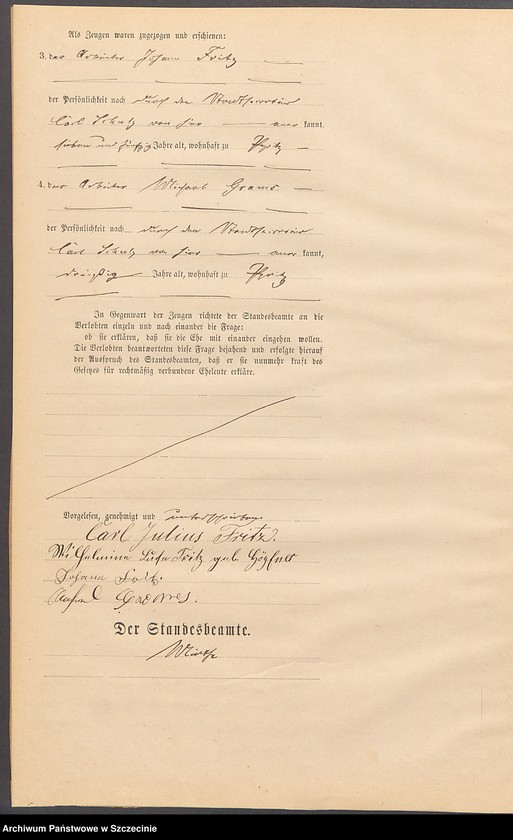 Als Zeugen waren zugezogen und erschienen:
3. der Arbeiter Johann Fritz
der Persönlichkeit nach durch den Stadtsecretär
Carl Schulz von hier anerkannt,
sieben und fünfzig Jahre alt, wohnhaft zu Pyritz
4. der Arbeiter Michael Grams
der Persönlichkeit nach durch den Stadtsecretär
Carl Schulz von hier anerkannt,
dreißig Jahre alt, wohnhaft zu Pyritz
In Gegenwart der Zeugen richtete der Standesbeamte an die
Verlobten einzeln und nach einander die Frage:
ob sie erklären, daß sie die Ehe mit einander eingehen wollen.
Die Verlobten beantworteten diese Frage bejahend und erfolgte hierauf
der Ausspruch des Standesbeamten, daß er sie nunmehr kraft des
Gesetzes für rechtmäßig verbundene Eheleute erkläre.
Vorgelesen, genehmigt und unterschrieben.
Carl Julius Fritz.
Wilhelmine Fritz geb. Höpfner
Johann
Der Standesbeamte.
Archiwum Państwowe w Szczecinie